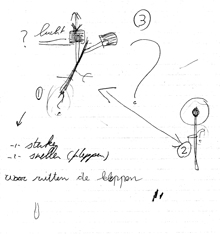 3
? lucht
1
-:- sterker
-:- sneller (kleppen)
2
?
waar zitten de kleppen